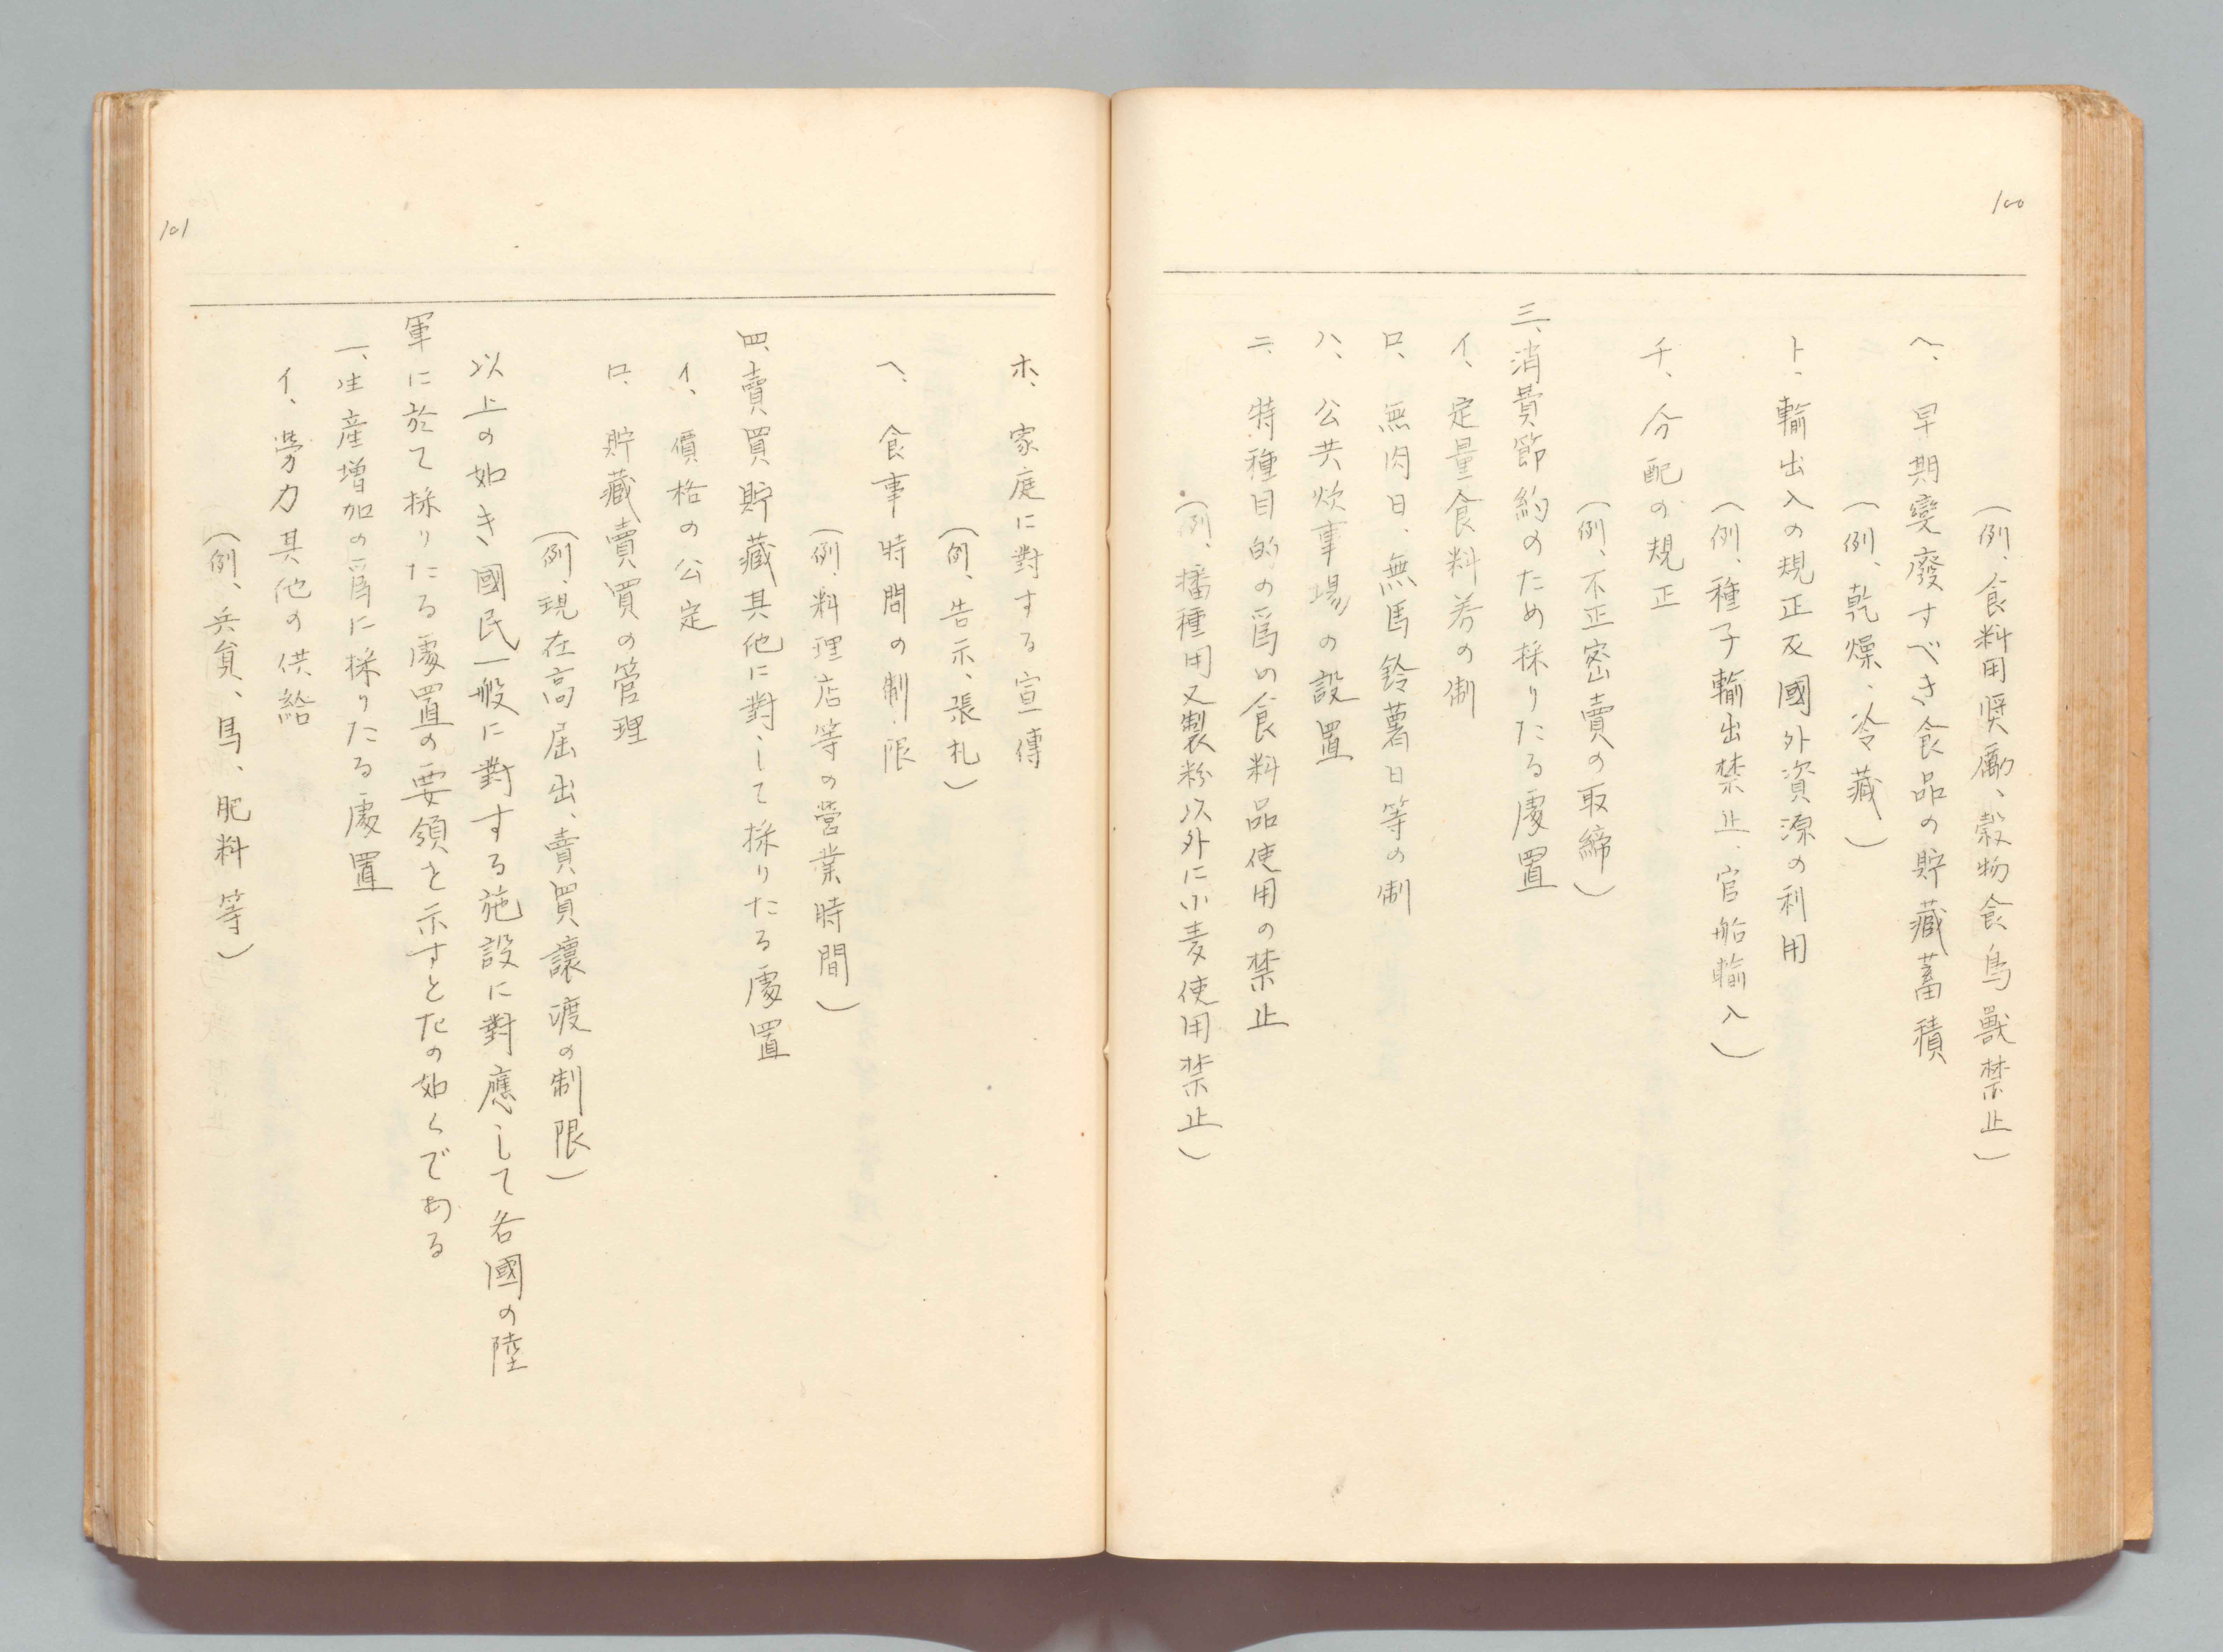 100
(例、食料用奬勵、穀物食鳥獸禁止)
ヘ、早期變廢すべき食品の貯藏蓄積
(例、乾燥、冷藏)
ト、輸出入の規正及國外資源の利用
(例、種子輸出禁止、官船輸入)
チ、分配の規正
(例、不正密賣の取締)
三、消費節約のため採りたる處置
イ、定量食料券の制
ロ、無肉日、無馬鈴薯日等の制
ハ、公共炊事場の設置
ニ、特種目的の爲の食料品使用の禁止
(例、播種用又製粉以外に小麦使用禁止)
ホ、家庭に對する宣傳
(例、告示、張札)
ヘ、食事時間の制限
(例、料理店等の營業時間)
四、賣買貯藏其他に對して採りたる處置
イ、價格の公定
ロ、貯藏賣買の管理
(例、現在高届出、賣買讓渡の制限)
以上の如き國民一般に對する施設に對應して各國の陸
軍に於て採りたる處置の要領を示すと左の如くである
一、生産増加の爲に採りたる處置
イ、勞力其他の供給
(例、兵員、馬、肥料等)
101